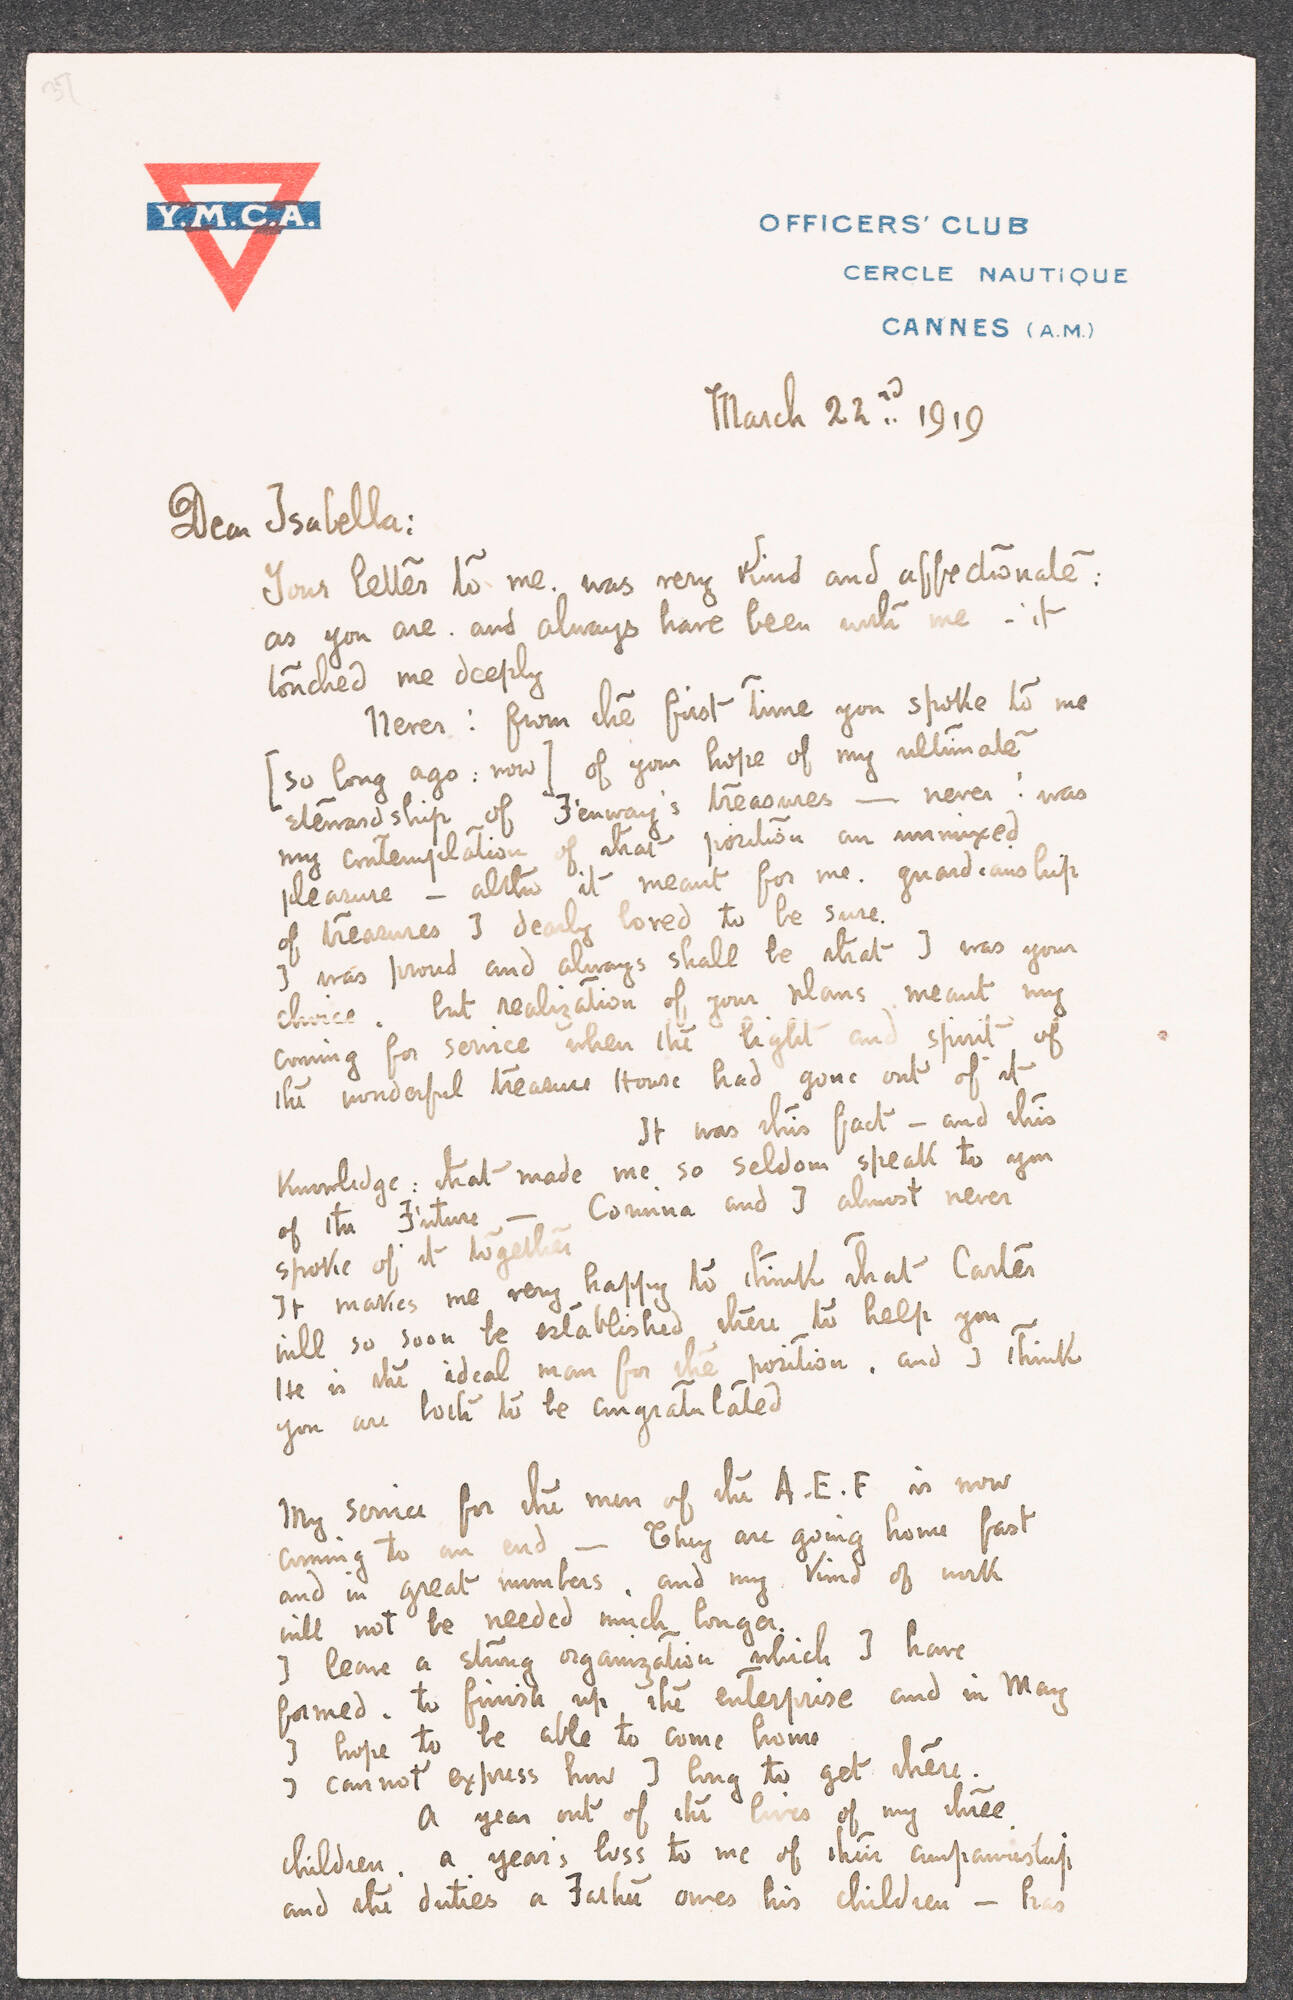 Y.M.C.A.
OFFICERS' CLUB
CERCLE NAUTIQUE
CANNES (A.M.)
March 22nd 1919
Dear Isabella:
Your letter to me. was very kind and affectionate:
as you are. and always have been with me - it
touched me deeply
Never! from the first time you spoke to me
[so long ago: now] of your hope of my ultimate
stewardship of Fenway's treasures — never! was
my contemplation of that position an unmixed
pleasure - altho it meant for me. guardianship
of treasures I dearly loved to be sure.
I was proud and always shall be that I was your
choice. but realization of your plans meant my
coming for service when the light and spirit of
the wonderful treasure House had gone out of it
It was this fact - and this
Knowledge: that made me so seldom speak to you
of the Future — Corinna and I almost never
spoke of it together
It makes me very happy to think that Carter
will so soon be established there to help you
He is the ideal man for the position. and I think
you are both to be congratulated
My service for the men of the A.E.F is now
coming to an end — They are going home fast
and in great numbers. and my kind of work
will not be needed much longer.
I leave a strong organization which I have
formed. to finish up the enterprise and in May
I hope to be able to come home
I cannot express how I long to get there.
A year out of the lives of my three
children. a year's loss to me of their companionship
and the duties a Father owes his children - has